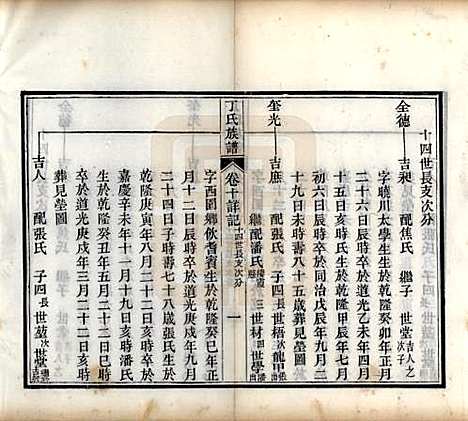 十四世長支次分
全德——吉昶 配焦氏 繼子 世堂 吉人之次子
字聯川太學生生於乾隆癸卯年正月
二十六日辰時卒於道光乙未年四月
十五日亥時焦氏生於乾隆甲辰年七月
初六日辰時卒於同治戊辰年九月二
十九日未時壽八十五歲葬見塋圖
奎光——吉 配 子四 長世梧 次龍甲
繼配潘氏 三世材 四世學
丁氏族譜 卷十詳記 十四世長支次分 一
字西園鄉飲耆賓生於乾隆癸巳年正
月十二日辰時卒於道光庚戌年九月
二十四日子時壽七十八歲張氏生於
乾隆庚寅年八月二十二日寅時卒於
嘉慶辛未年十一月十九日亥時潘氏
生於乾隆辛丑年五月初五日亥時
卒於道光庚戌年三月二十二日亥時
葬見塋圖
吉人 配張氏 子四 長世堃 次世學